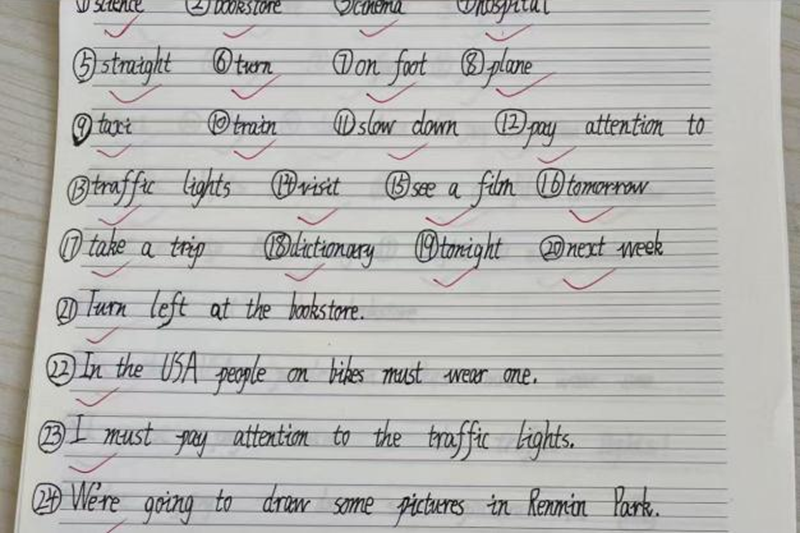 ①science ②bookstore ③cinema ④hospital
⑤straight ⑥turn ⑦on foot ⑧plane
⑨taxi ⑩train ⑪slow down ⑫pay attention to
⑬traffic lights ⑭visit ⑮see a film ⑯tomorrow
⑰take a trip ⑱dictionary ⑲tonight ⑳next week
㉑Turn left at the bookstore.
㉒In the USA people on bikes must wear one.
㉓I must pay attention to the traffic lights.
㉔We're going to draw some pictures in Renmin Park.